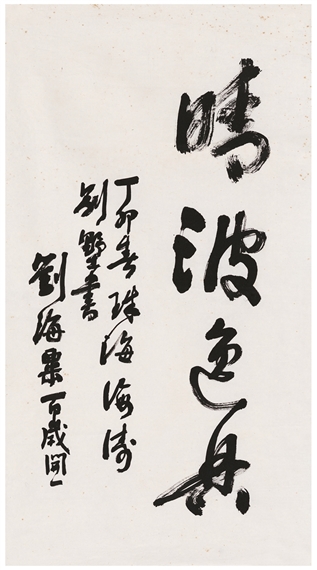 晴波逸興
丁卯春珠海海濤
別墅書
劉海粟百歲開一